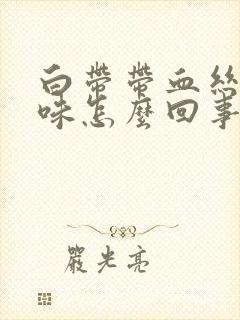 白帶帶血絲
味怎麼回事
嚴光亮